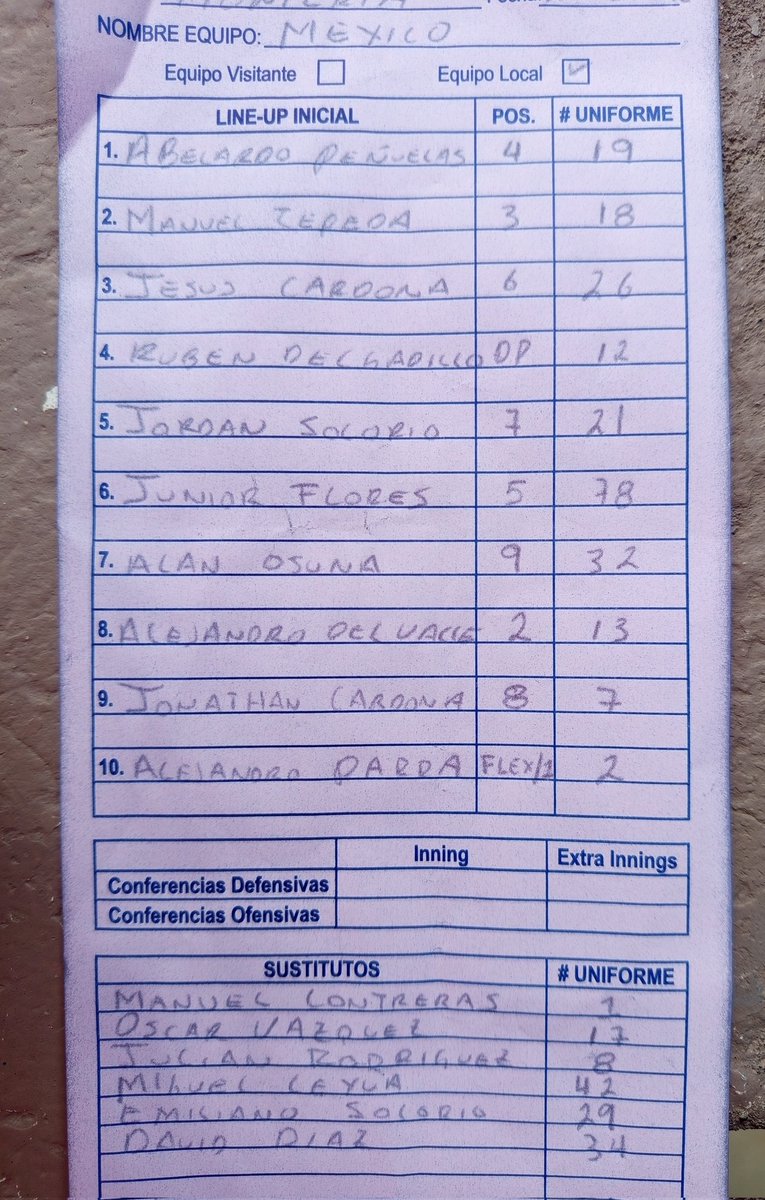 NOMBRE EQUIPO: MEXICO
Equipo Visitante Equipo Local
LINE-UP INICIAL POS. # UNIFORME
1. ABELARDO PEÑUELAS 4 19
2. MANUEL ZEPEDA 3 18
3. JESUS CARDONA 6 26
4. RUBEN DELGADILLO DP 12
5. JORDAN SOCORIO 7 21
6. JUNIOR FLORES 5 78
7. ALAN OSUNA 9 32
8. ALEJANDRO DEL VALLE 2 13
9. JONATHAN CARDONA 8 7
10. ALEJANDRO PARDA FLEX/1 2
Inning Extra Innings
Conferencias Defensivas
Conferencias Ofensivas
SUSTITUTOS # UNIFORME
MANUEL CONTRERAS 1
OSCAR VAZQUEZ 17
JULIAN RODRIGUEZ 8
MIGUEL LEYVA 42
EMILIANO SOCORIO 29
DAVID DIAZ 34